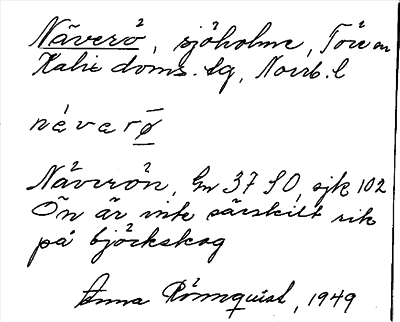 Näverö, sjöholme, Töre sn
Kalix doms.lg, Norrb. l
nǽvarø̄
Näverön, Gm 37 SO, sjk 102
Ön är inte särskilt rik
på björkskog
Anna Rönnquist, 1949